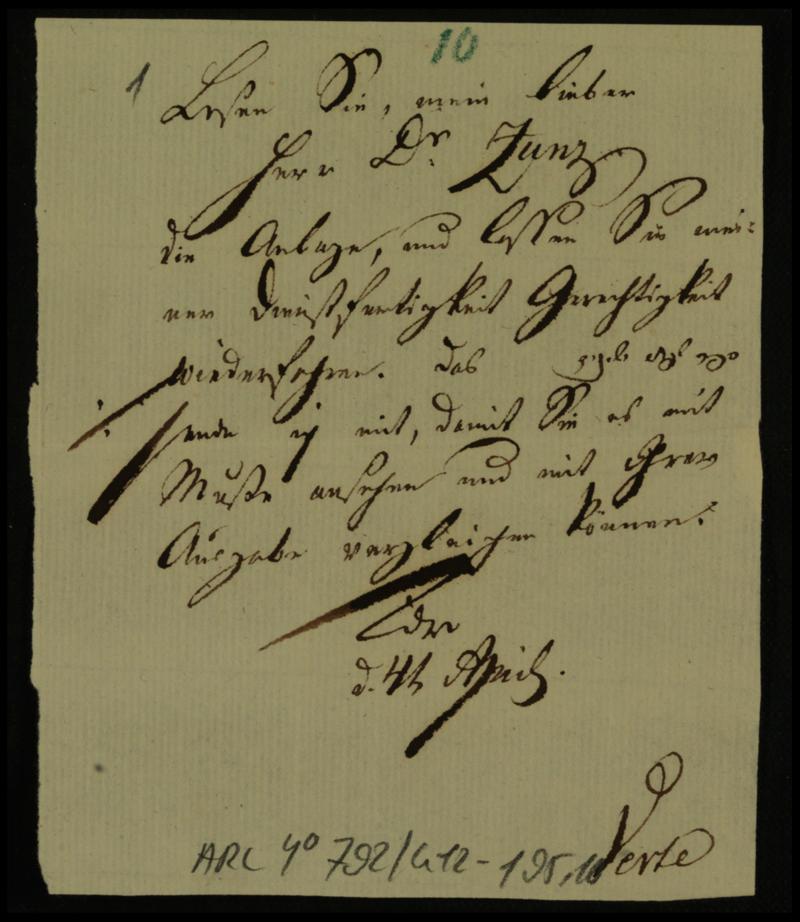 10
1
Lesen Sie, mein lieber
Herr Dr. Zunz
die Anlage, und lassen Sie mei-
ner Dienstfertigkeit Gerechtigkeit
wiederfahren. Das
sende ich mit, damit Sie es mit
Muße ansehen und mit Ihrer
Ausgabe vergleichen können.
Ihr
d. 4t April.
Verte
ARC 4° 792/G12-195,10